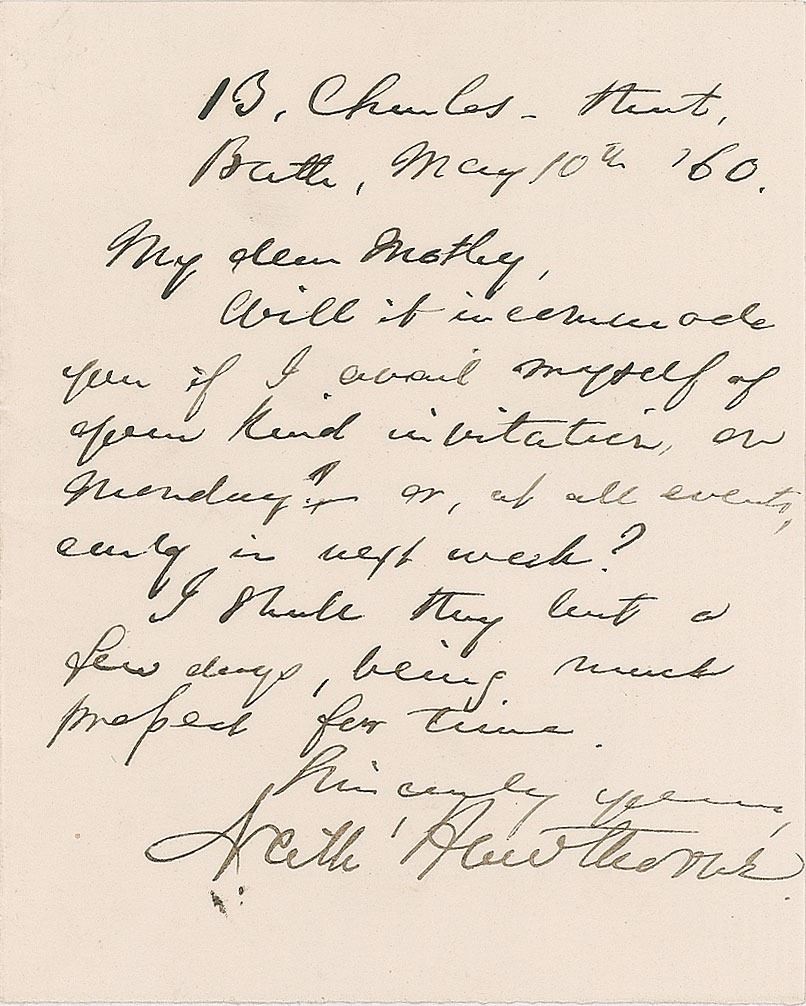 13, Charles - Street,
Bath, May 10th '60.
My dear Motley,
Will it incommode
you if I avail myself of
your kind invitation, on
Monday? - or, at all events,
early in next week?
I shall stay but a
few days, being much
pressed for time.
Sincerely yours,
Nath Hawthorne.